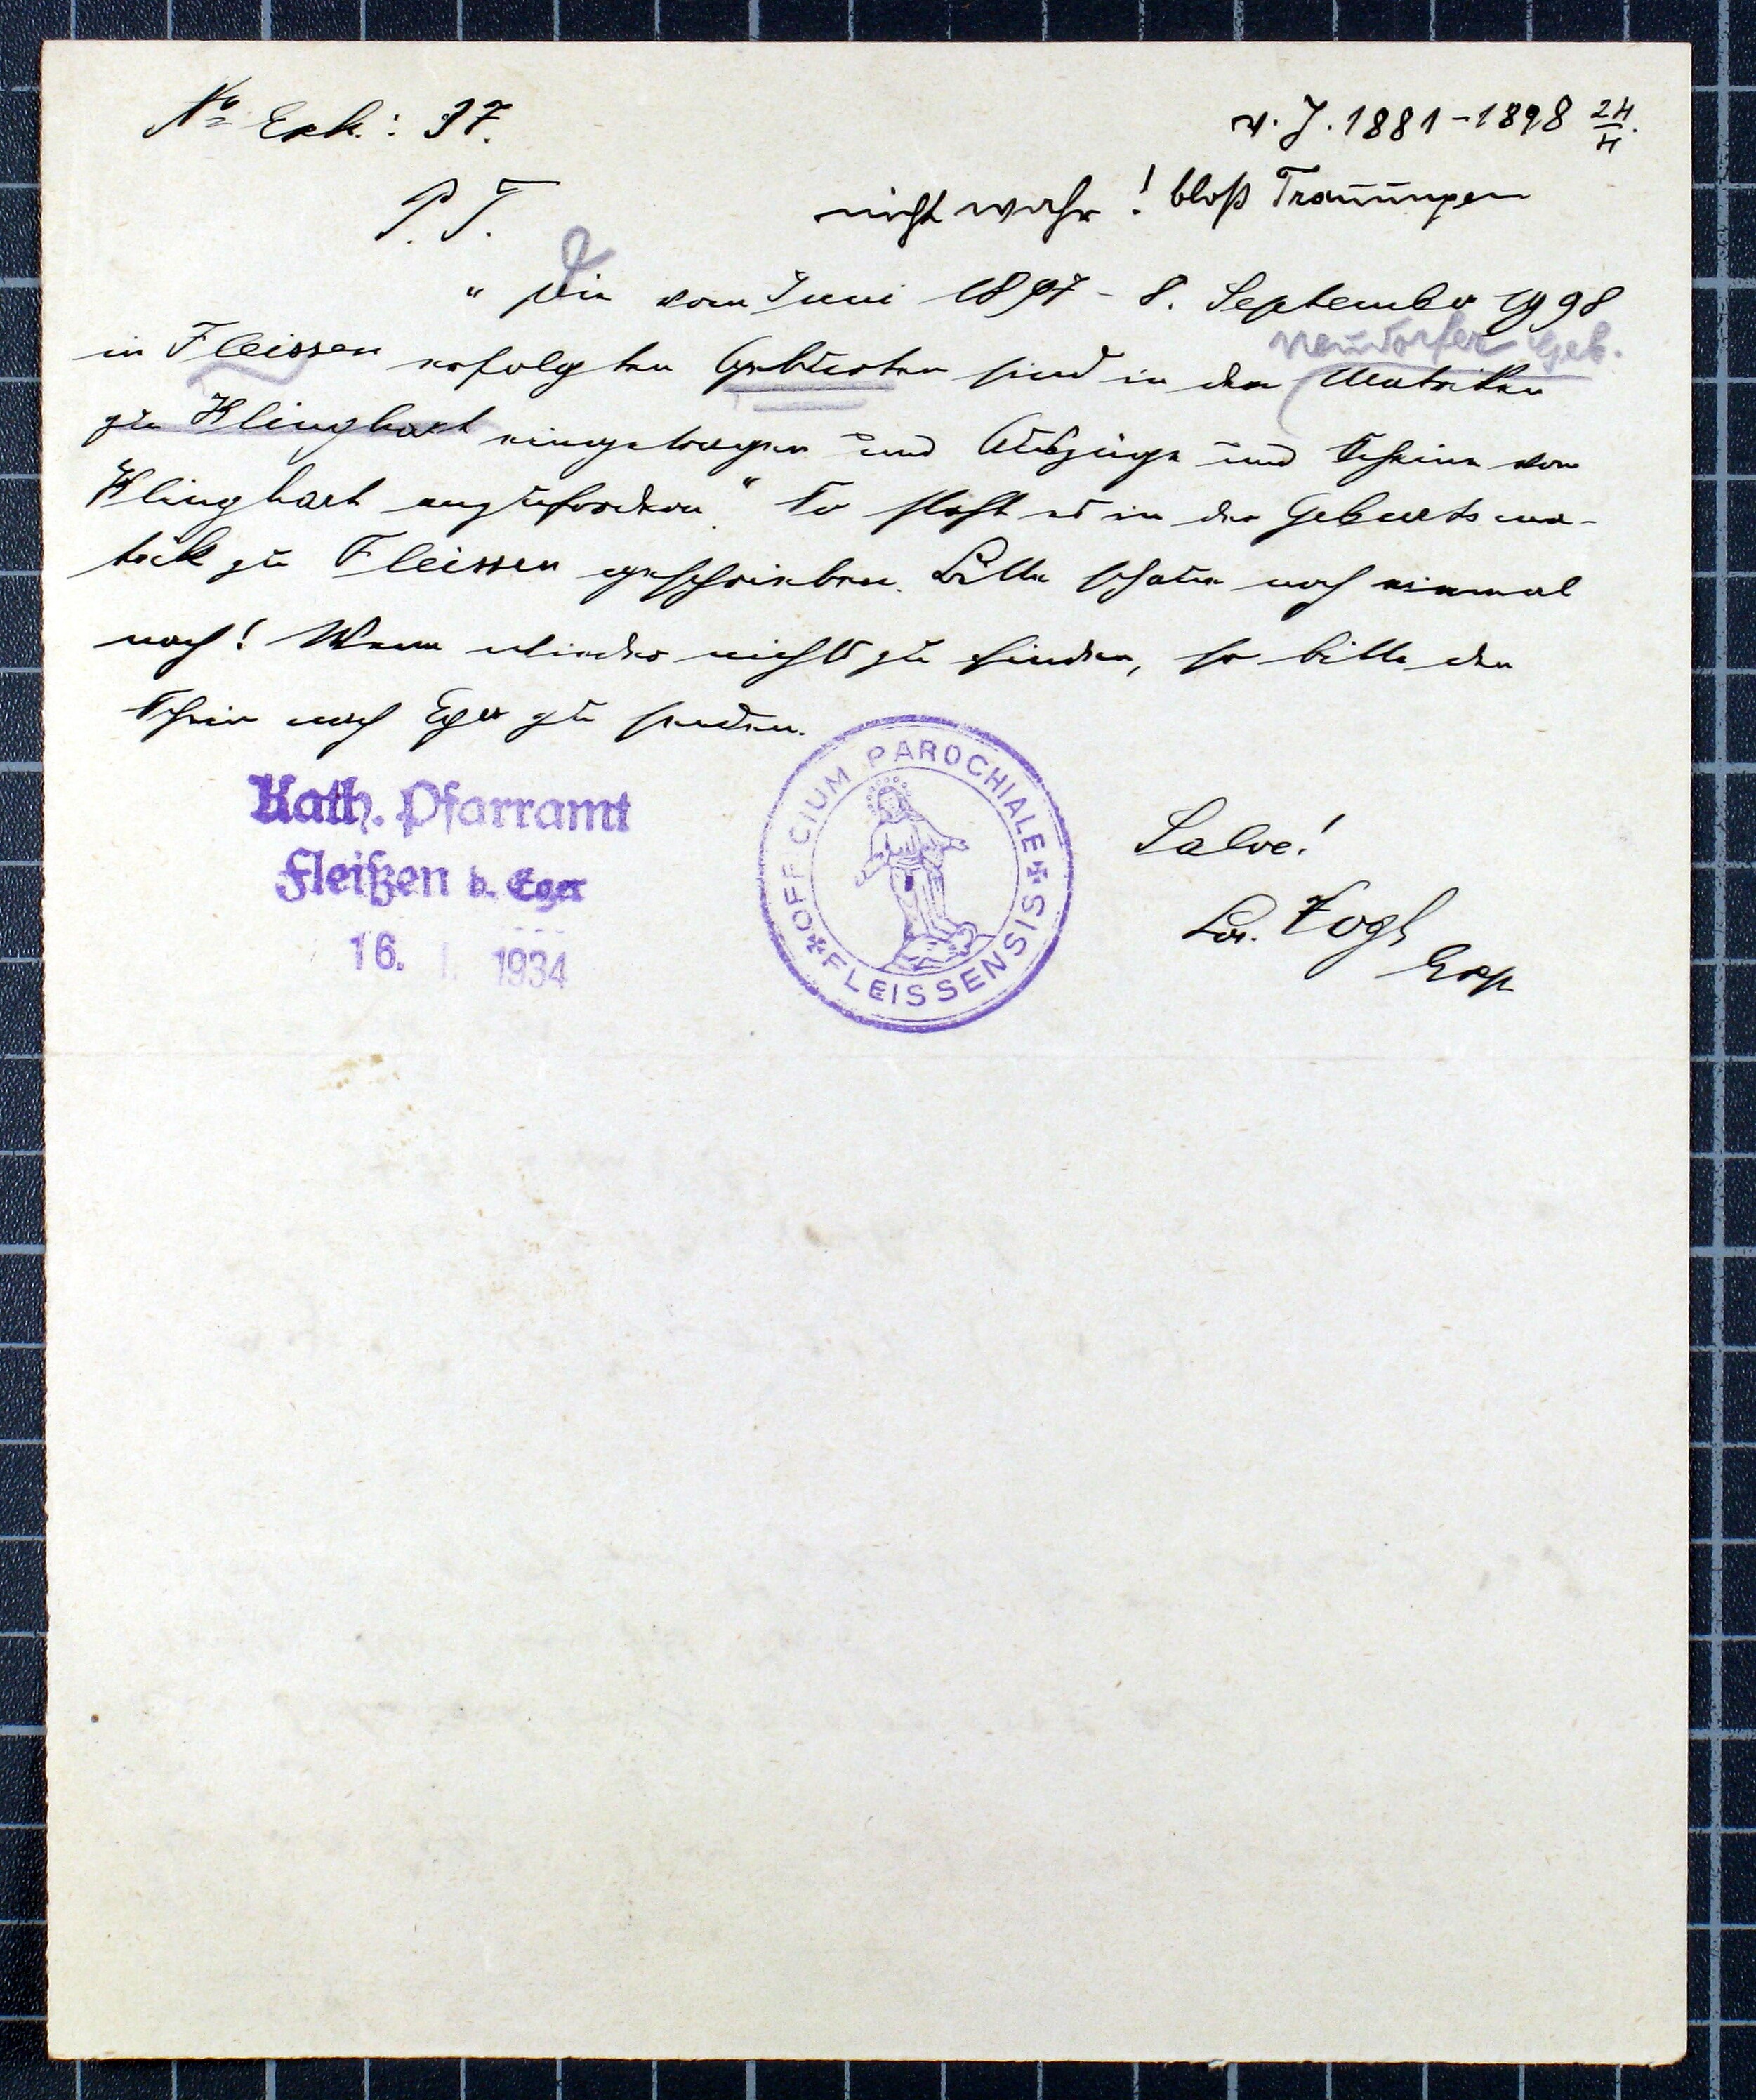 No Exh.: 37.
v. J. 1881-1898 24/4.
P. T.
nicht wahr! bloß Trauungen
"Die vom Juni 1897 - 8. September 1998
Neudorfer Geb.
in Fleissen erfolgten Geburten sind in den Matriken
zu Klinghart eingetragen und Auszüge und Scheine von
Klinghart anzufordern." So steht es in der Geburtsma-
trik zu Fleissen geschrieben. Bitte schauen noch einmal
nach! Wenn wieder nichts zu finden, so bitte den
Schein nach Eger zu senden.
Kath. Pfarramt
Fleißen b. Eger
16. I. 1934
OFFICIUM PAROCHIALE
FLEISSENSIS
Salve!
Vogl